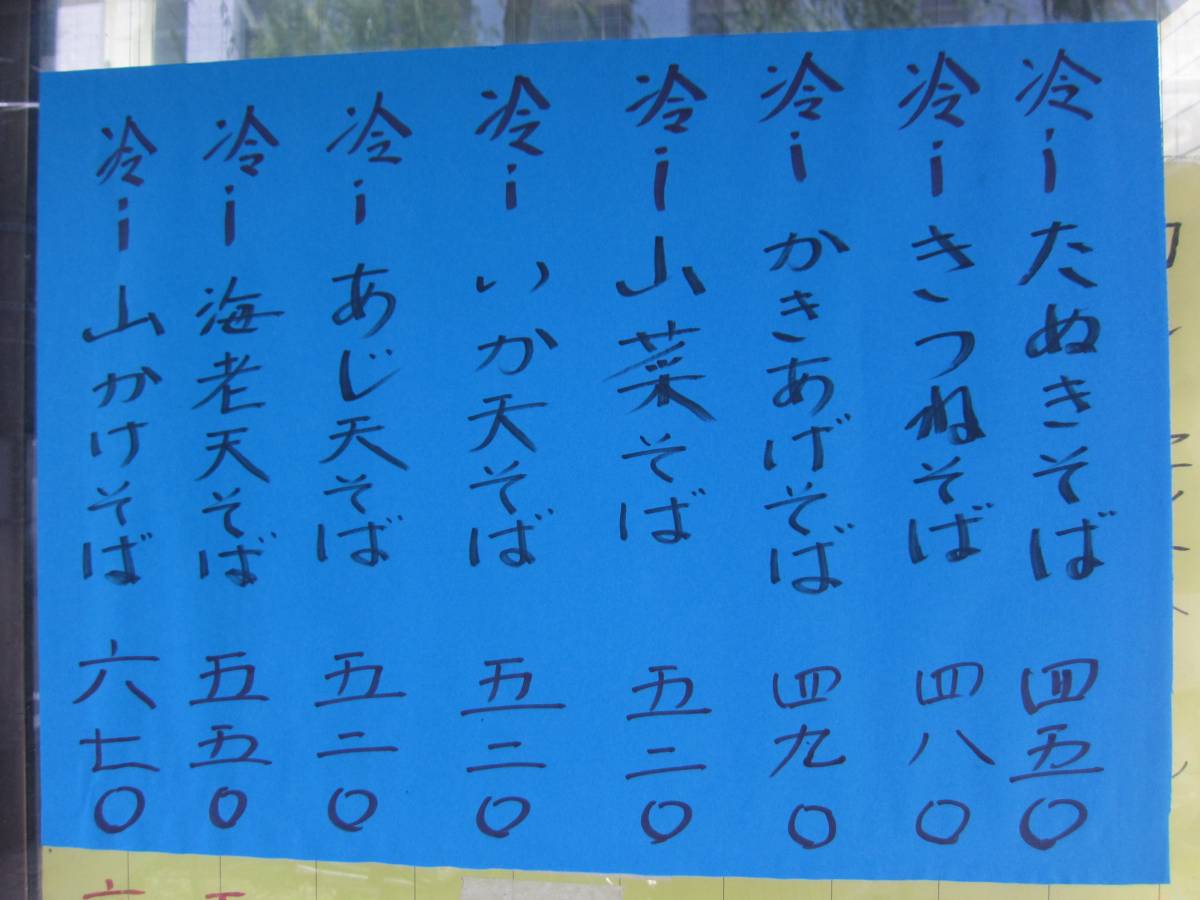 冷したぬきそば 四五〇
冷しきつねそば 四八〇
冷しかきあげそば 四九〇
冷し山菜そば 五二〇
冷しいか天そば 五二〇
冷しあじ天そば 五二〇
冷し海老天そば 五五〇
冷し山かけそば 六七〇